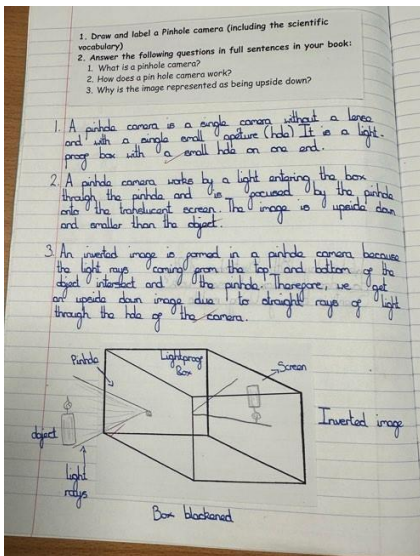 1. Draw and label a Pinhole camera (including the scientific
vocabulary)
2. Answer the following questions in full sentences in your book:
1. What is a pinhole camera?
2. How does a pin hole camera work?
3. Why is the image represented as being upside down?
1. A pinhole camera is a single camera without a lense
and with a single small apeture (hole) It is a light-
proof box with a small hole on one end.
2. A pinhole camera works by a light entering the box
through the pinhole and is focused by the pinhole
onto the translucent screen. The image is upside down
and smaller than the object.
3. An inverted image is formed in a pinhole camera because
the light rays coming from the top and bottom of the
object intersect and the pinhole. Therefore, we get
an upside down image due to straight rays of light
through the hole of the camera.
Pinhole
Lightproof
Box
Screen
object
Inverted image
light
rays
Box blackened